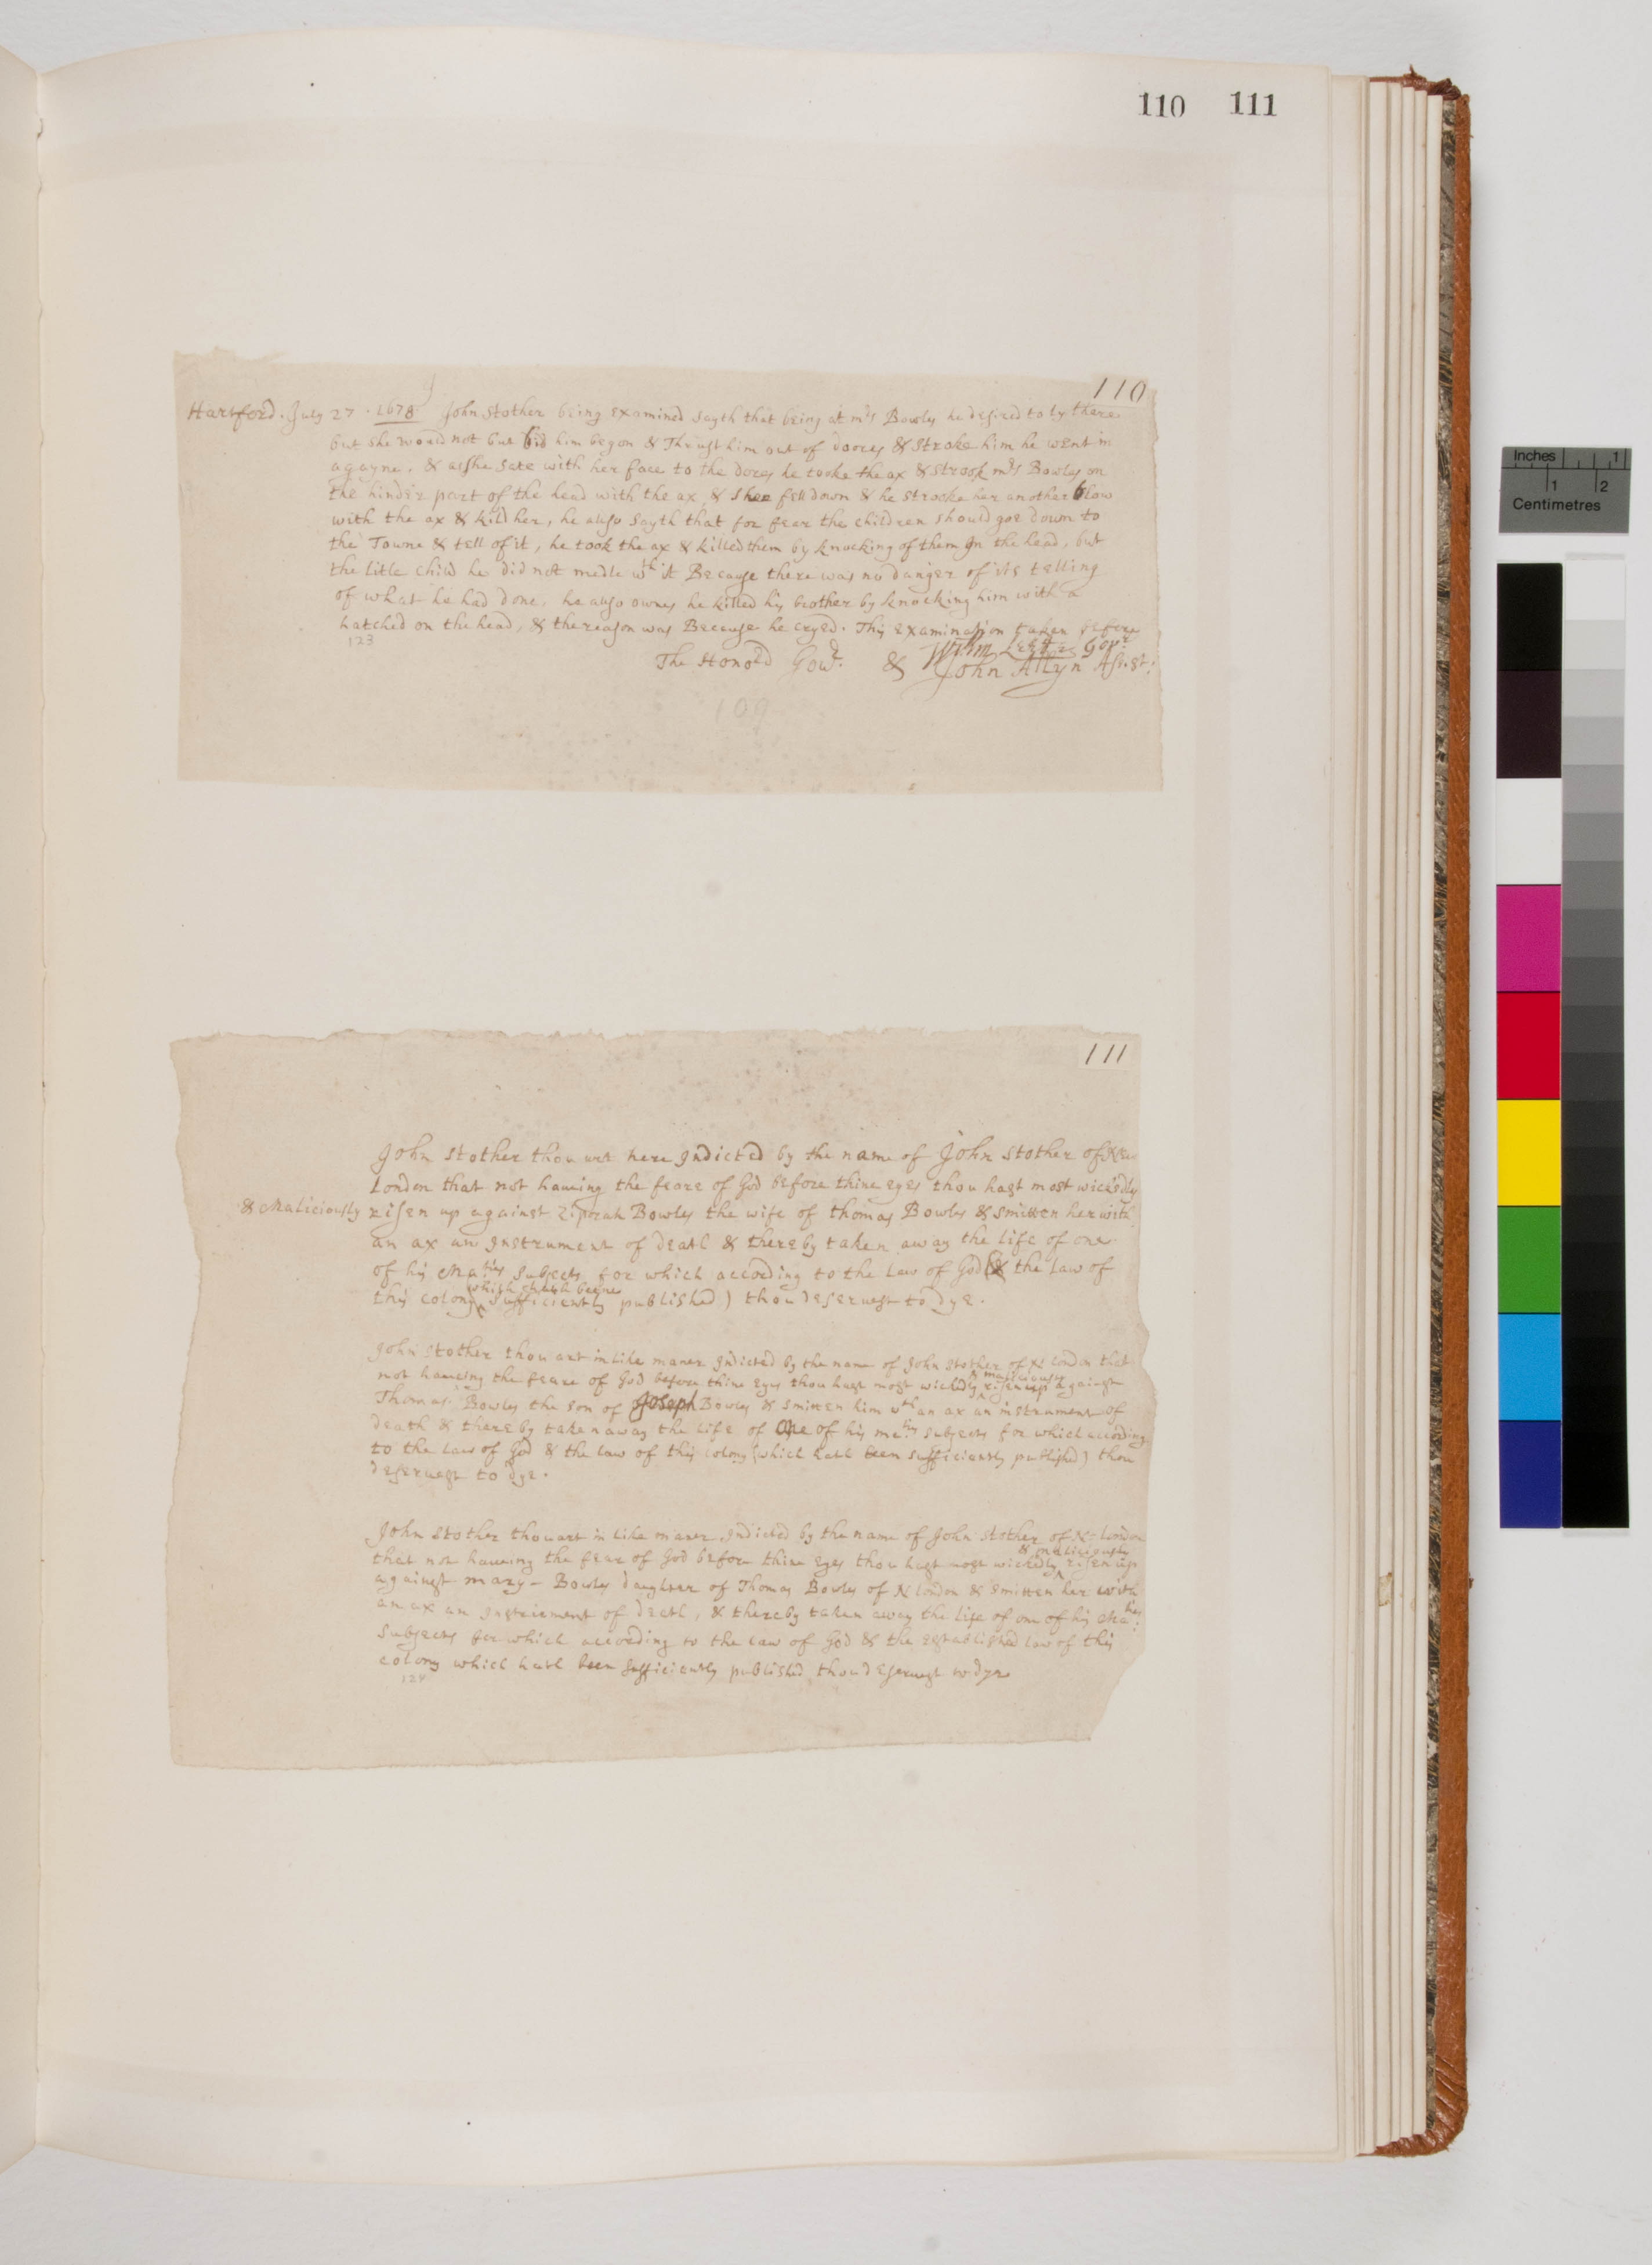 110 111
110
Hartford. July 27. 1678 John Stother being Examined Sayth that being at mrs Bowles he desired to ly there
but she would not but bid him begon & Thrust him out of doores & Stroke him he went in
agayne, & as she sate with her face to the dores he tooke the ax & strook mrs Bowles on
the hinder part of the head with the ax, & shee fell down & he strocke her another blow
with the ax & kild her, he also Sayth that for fear the children should goe down to
the Towne & tell of it, he took the ax & killed them by knocking of them on the head, but
the litle child he did not medle wth it Because there was no danger of its telling
of what he had done. he also ownes he killed his brother by knocking him with a
hatched on the head, & the reason was Because he cryed. This Examination taken before
123
The Honord Govr. & Willm Leete Govr
John Allyn Assist:
109
111
John Stother thou art here Indicted by the name of John Stother of New
London that not haueing the feare of God before thine eyes thou hast most wickedly
& Maliciously risen up against Ziporah Bowles the wife of thomas Bowles & smitten her with
an ax an Instrument of death & thereby taken away the life of one
of his Maties Subjects for which according to the Law of God & the Law of
which hath beene
this colony sufficiently published) thou deseruest to dye.
John Stother thou art in like maner Indicted by the name of John Stother of N London that
& maliciously
not haueing the feare of God before thine Eyes thou hast most wickedly risen up against
Thomas Bowles the son of Joseph Bowles & smitten him wth an ax an instrument of
death & thereby taken away the life of One of his maties subjects for which according
to the law of God & the law of this colony (which hath been sufficiently published) thou
deseruest to dye.
John Stother thou art in like maner Indicted by the name of John Stother of N- London
& maliciously
that not haueing the fear of God before thine Eyes thou hast most wickedly risen up
against mary - Bowles daughter of Thomas Bowles of N London & smitten her with
an ax an Instriement of death, & thereby taken away the life of one of his Maties
Subjects for which according to the law of God & the established law of this
colony which hath been sufficiently published thou deseruest to dye
124
Inches 1
1 2
Centimetres